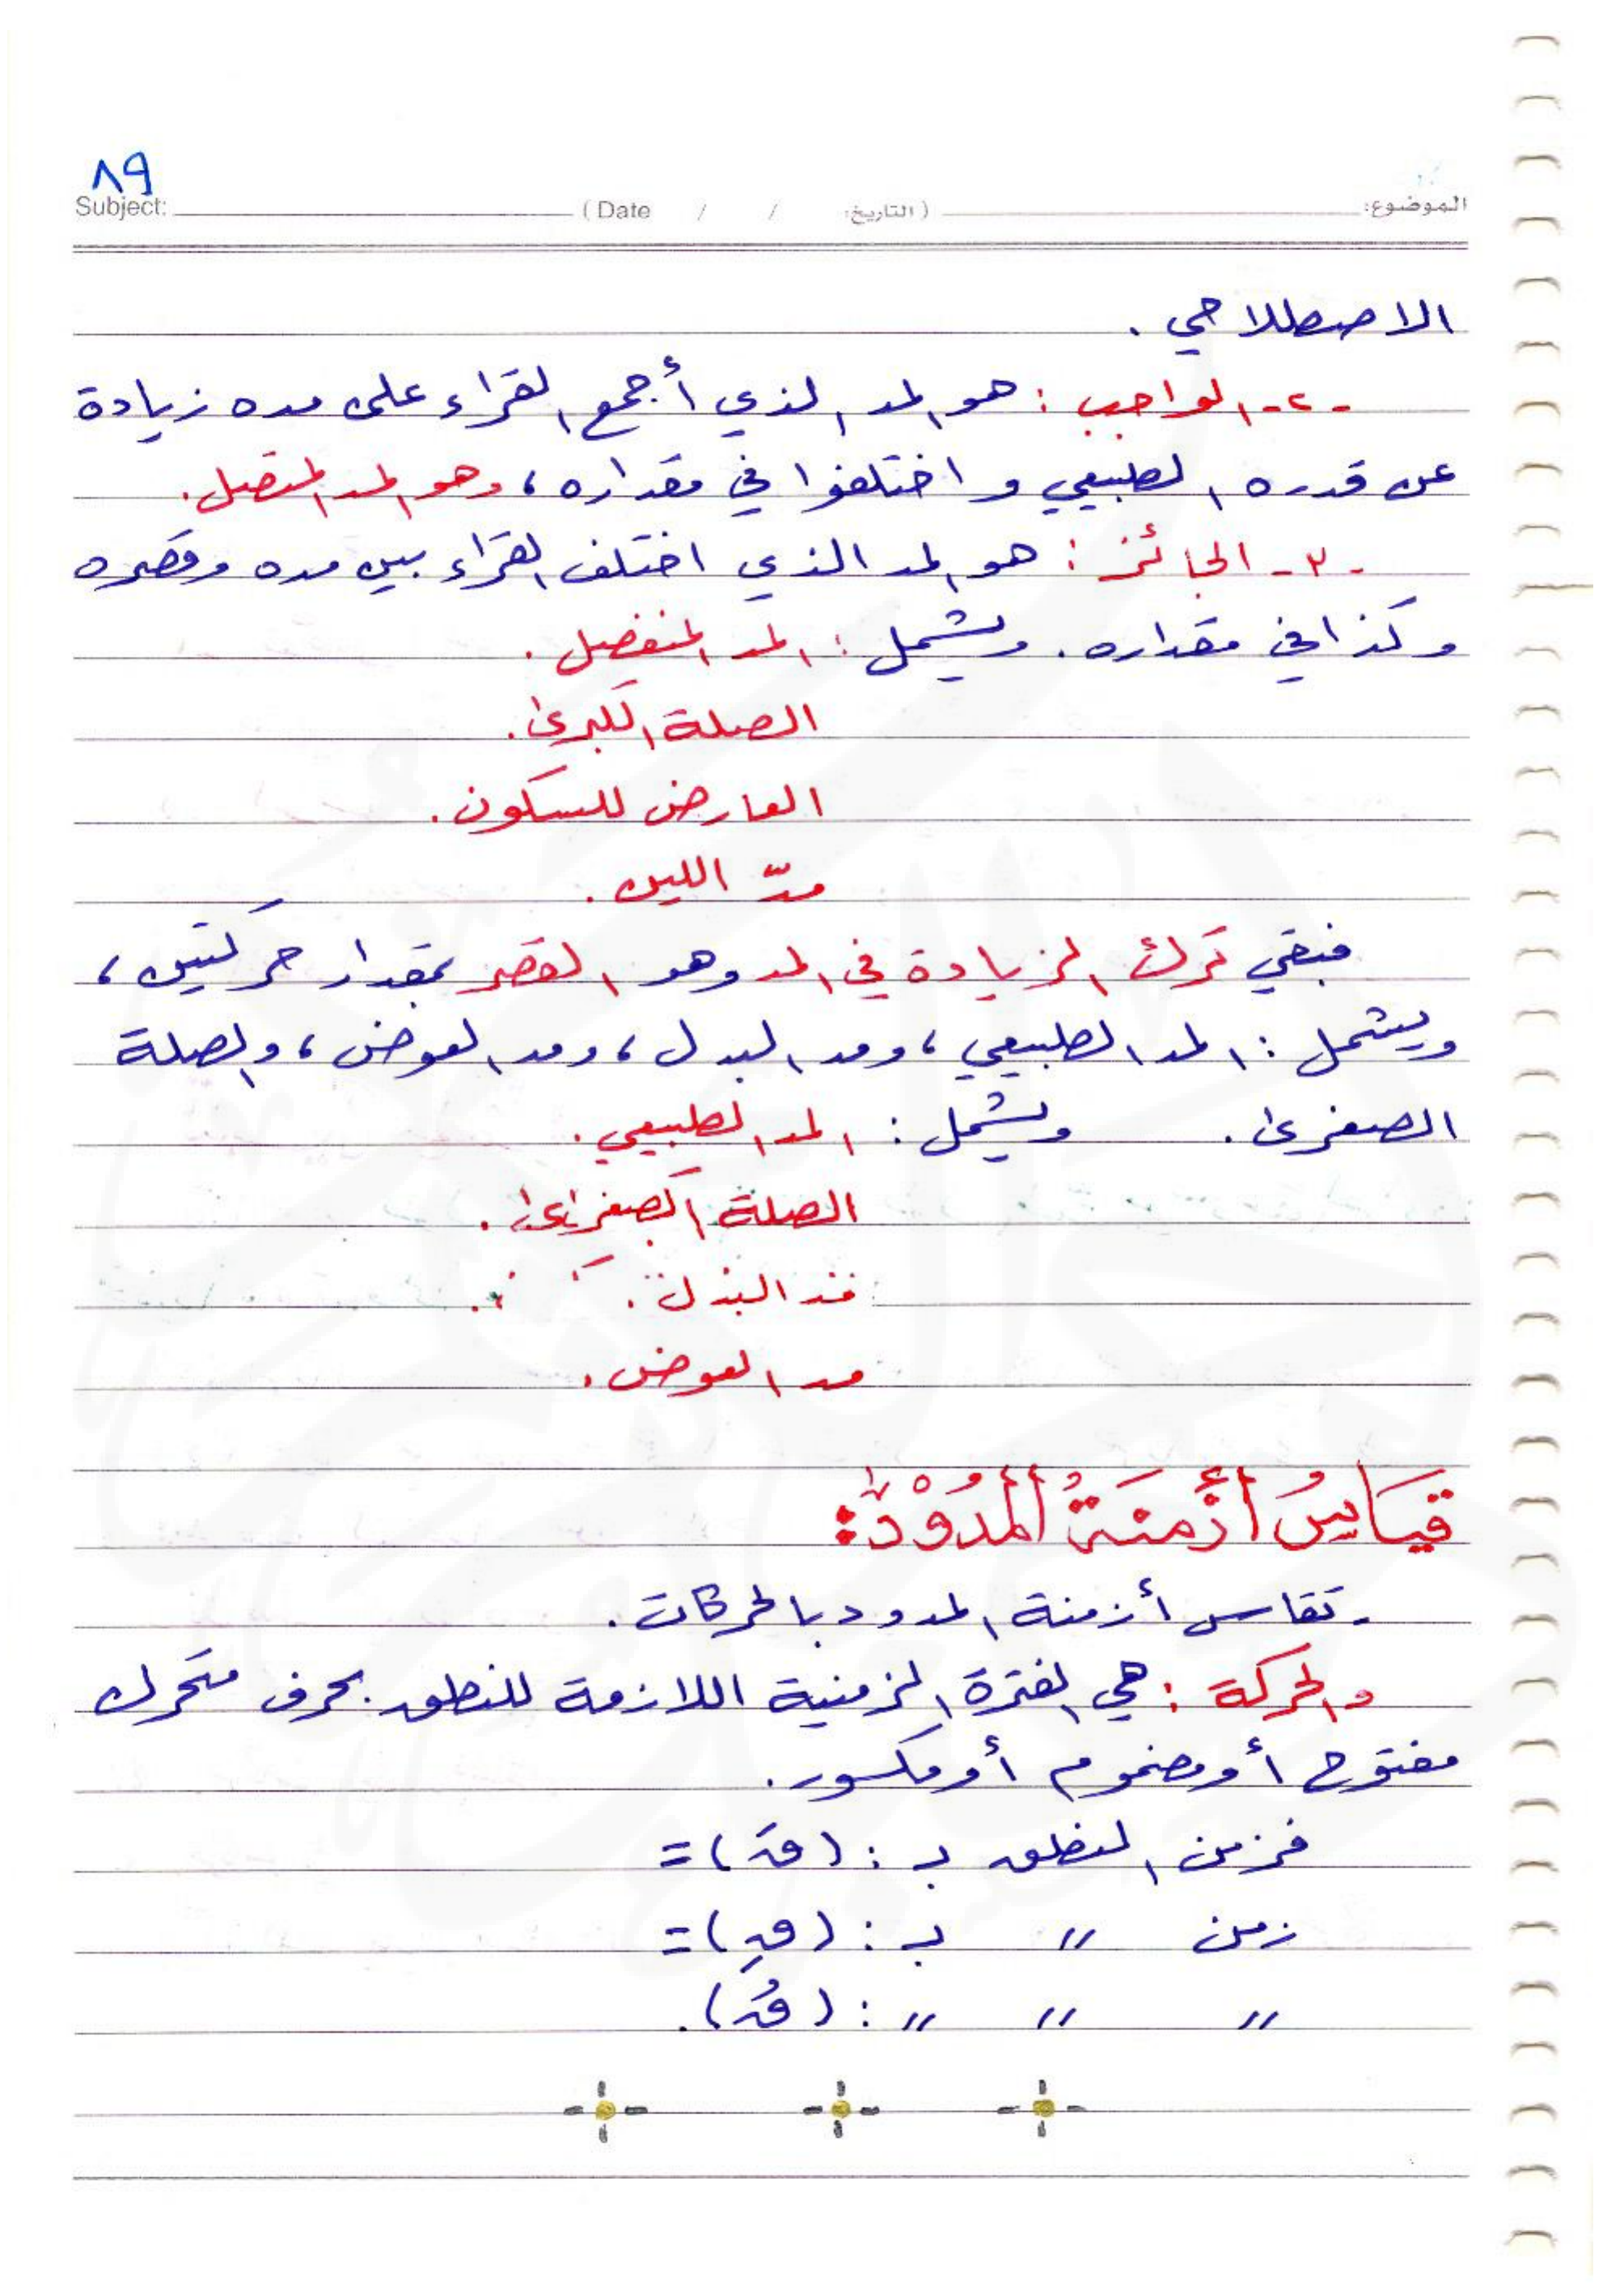 ٨٩
الموضوع: (التاريخ: / / Date) Subject:
الاصطلاحي .
-٢- الواجب : هو المد الذي أجمع القرّاء على مده زيادة
عن قدره الطبيعي و اختلفوا في مقداره ، وهو المد المتصل .
-٣- الجائز : هو المد الذي اختلف القرّاء بين مده وقصره
وكذا في مقداره . ويشمل : المد المنفصل .
الصلة الكبرى .
العارض للسكون .
مدّ اللين .
فبقي ترك الزيادة في المد وهو القصر بمقدار حركتين ،
ويشمل : المد الطبيعي ، ومد البدل ، ومد العوض ، والصلة
الصغرى . ويشمل : المد الطبيعي .
الصلة الصغرى .
مد البدل .
مد العوض .
قِيَاسُ أَزْمِنَةُ المُدُوْدْ :
- تقاس أزمنة المدود بالحركات .
والحركة : هي الفترة الزمنية اللازمة للنطق بحرف متحرك
مفتوح أو مضموم أو مكسور .
فزمن النطق بـ : (قَـ) =
زمن " بـ : (قِـ) =
" " " : (قُـ) .